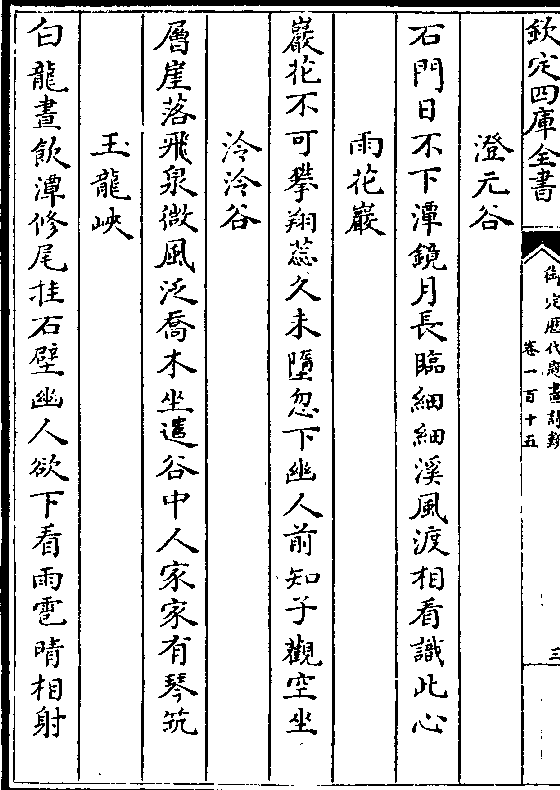 欽定四庫全書
御定歷代題畫詩類
卷一百十五
三
澄元谷
石門日不下潭鏡月長臨細細溪風渡相看識此心
雨花巖
巖花不可攀翔蕊久未墮忽下幽人前知子觀空坐
泠泠谷
層崖落飛泉微風泛喬木坐遣谷中人家家有琴筑
玉龍峽
白龍晝飲潭修尾挂石壁幽人欲下看雨雹晴相射